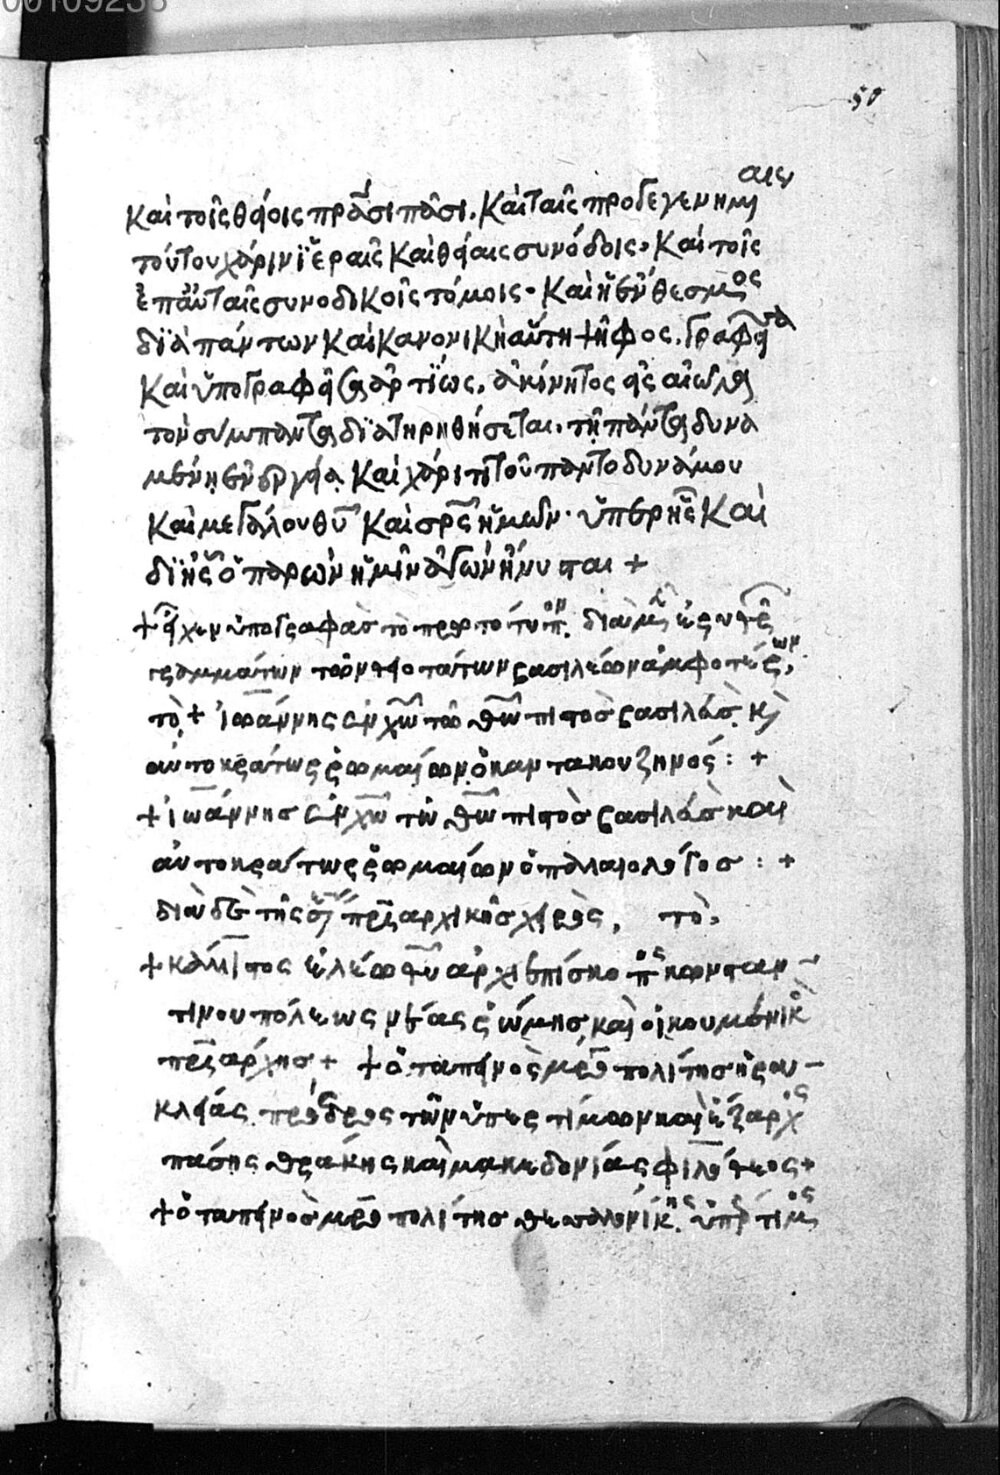 00109238
50
καὶ τοῖς θείοις πράγμασι πᾶσι. Καὶ ταῖς προγεγενημέναις
τούτου χάριν ἱεραῖς καὶ θείαις συνόδοις. Καὶ τοῖς
ἐπ' αὐταῖς συνοδικοῖς τόμοις. Καὶ ἡ ἔνθεσμος
διὰ πάντων καὶ κανονικὴ αὕτη ψῆφος. Γραφεῖσα
καὶ ὑπογραφεῖσα ἀρτίως. ἀκίνητος εἰς αἰῶνα
τὸν σύμπαντα διατηρηθήσεται. τῇ πάντα δυνα
μένῃ ἐνεργείᾳ καὶ χάριτι τοῦ παντοδυνάμου
καὶ μεγάλου θυ καὶ σρς ἡμῶν. ὑπὲρ ἧς καὶ
δι' ἧς ὁ παρὼν ἡμῖν ἀγὼν ἤνυσται +
+ εἶχεν ὑπογραφὰς τὸ πρωτότυπον. διὰ μὲν ἐρυθρῶν
γραμμάτων τῶν θειοτάτων βασιλέων ἀμφοτέρων,
τὸ, + Ἰωάννης ἐν χω τῶ θω πιστὸς βασιλεὺς κὶ
αὐτοκράτωρ ῥωμαίων ὁ καντακουζηνός : +
+ ἰωάννης ἐν χω τῶ θω πιστὸς βασιλεὺς καὶ
αὐτοκράτωρ ῥωμαίων ὁ παλαιολόγος : +
διὰ δὲ τῆς πριαρχικῆς χειρὸς, τὸ,
+ κάλλιστος ἐλέω θυ ἀρχιεπίσκοπος κωνσταν-
τινουπόλεως νέας ῥώμης καὶ οἰκουμενικὸς
πριάρχης + + ὁ ταπεινὸς μρο πολίτης ἡρα-
κλείας πρόεδρος τῶν ὑπερτίμων καὶ ἔξαρχος
πάσης θράκης καὶ μακεδονίας φιλόθεος +
+ ὁ ταπεινὸς μρο πολίτης θεσσαλονίκης. ὑπέρτιμος